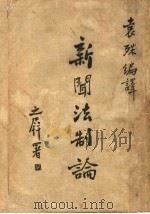 袁殊編譯
新聞法制論
之屏署